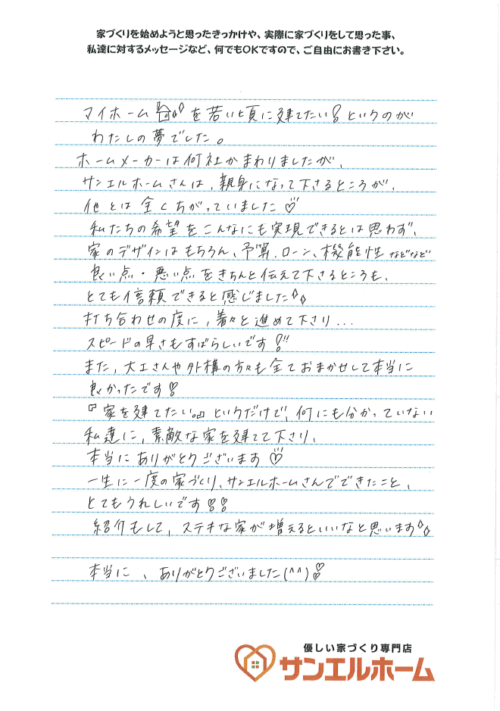 家づくりを始めようと思ったきっかけや、実際に家づくりをして思った事、
私達に対するメッセージなど、何でもOKですので、ご自由にお書き下さい。
マイホームを若い頃に建てたい!というのが
わたしの夢でした。
ホームメーカーは何社かまわりましたが、
サンエルホームさんは、親身になって下さるところが、
他とは全くちがっていました♡
私たちの希望をこんなにも実現できるとは思わず、
家のデザインはもちろん、予算、ローン、機能性などなど
良い点・悪い点をきちんと伝えて下さるところも、
とても信頼できると感じました
打ち合わせの度に、着々と進めて下さり...
スピードの早さもすばらしいです!!
また、大工さんや外構の方々も全ておまかせして本当に
良かったです!
『家を建てたい。』というだけで、何にも分かっていない
私達に、素敵な家を建てて下さり、
本当にありがとうございます♡
一生に一度の家づくり、サンエルホームさんでできたこと、
とてもうれしいです!!
紹介もして、ステキな家が増えるといいなと思います
本当に、ありがとうございました(^^)!
優しい家づくり専門店
サンエルホーム